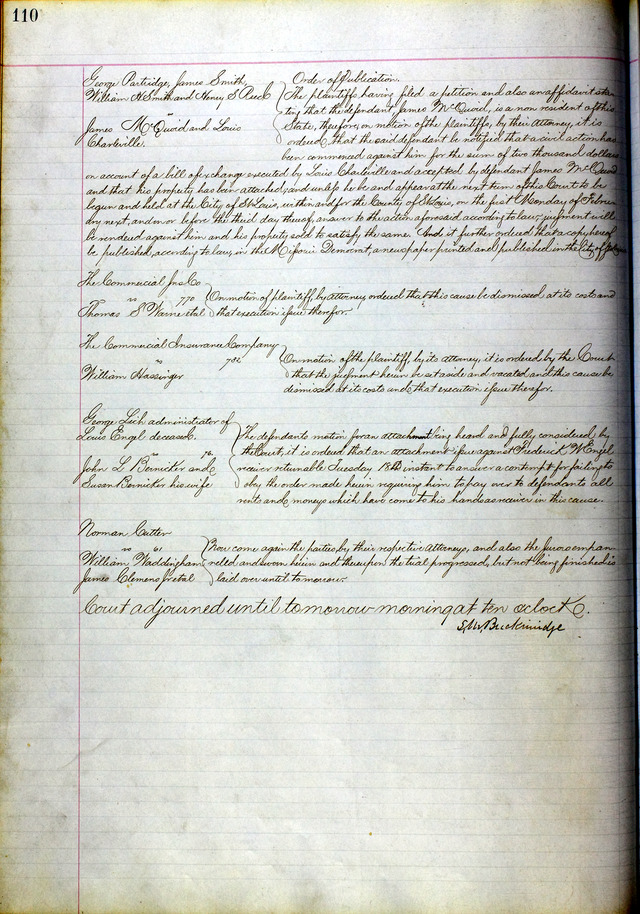 110
George Partridge, James Smith,
William H Smith and Henry S Reed
vs
James McQuoid and Louis
Charleville.
Order of Publication.
The plaintiffs having filed a petition and also an affidavit sta
ting that the defendant James McQuoid, is a non resident of this
State, therefore, on motion of the plaintiffs, by their Attorney, it is
ordered that the said defendant be notified that a civil action has
been commenced against him for the sum of two thousand dollars
on account of a bill of exchange executed by Louis Charleville and accepted by defendant James McQuoid
and that his property has been attached, and unless he be and appear at the next term of this Court to be
begun and held at the City of St Louis, within and for the County of St Louis, on the first Monday of Febru
ary next, and on or before the third day thereof, answer to the action aforesaid according to law, judgment will
be rendered against him and his property sold to satisfy the same. And it further ordered that a copy hereof
be published, according to law, in the Missouri Democrat, a newspaper printed and published in the City of St Louis
The Commercial Ins Co
vs 770
Thomas S Warne et al
On motion of plaintiff, by attorney, ordered that this cause be dismissed at its costs and
that execution issue therefor.
The Commercial Insurance Company
vs 782
William Hassinger
On motion of the plaintiff, by its Attorney, it is ordered by the Court
that the judgment herein be set aside and vacated, and this cause be
dismissed at its costs and that execution issue therefor.
George Lich administrator of
Louis Engel deceased.
vs 76.
John L Bernicker and
Susan Bernicker his wife
The defendants motion for an attachment being heard and fully considered by
the Court, it is ordered that an attachment issue against Frederick W Engel
receiver returnable Tuesday 18th instant to answer a contempt for failing to
obey the order made herein requiring him to pay over to defendants all
rents and moneys which have come to his hands as receiver in this cause.
Norman Cutter
vs 61
William Waddingham
James Clemens Jr et al
Now come again the parties, by their respective Attorneys, and also the jurors empan
neled and sworn herein and thereupon the trial progressed, but not being finished is
laid over until tomorrow.
Court adjourned until tomorrow morning at ten oclock.
S. M. Breckinridge